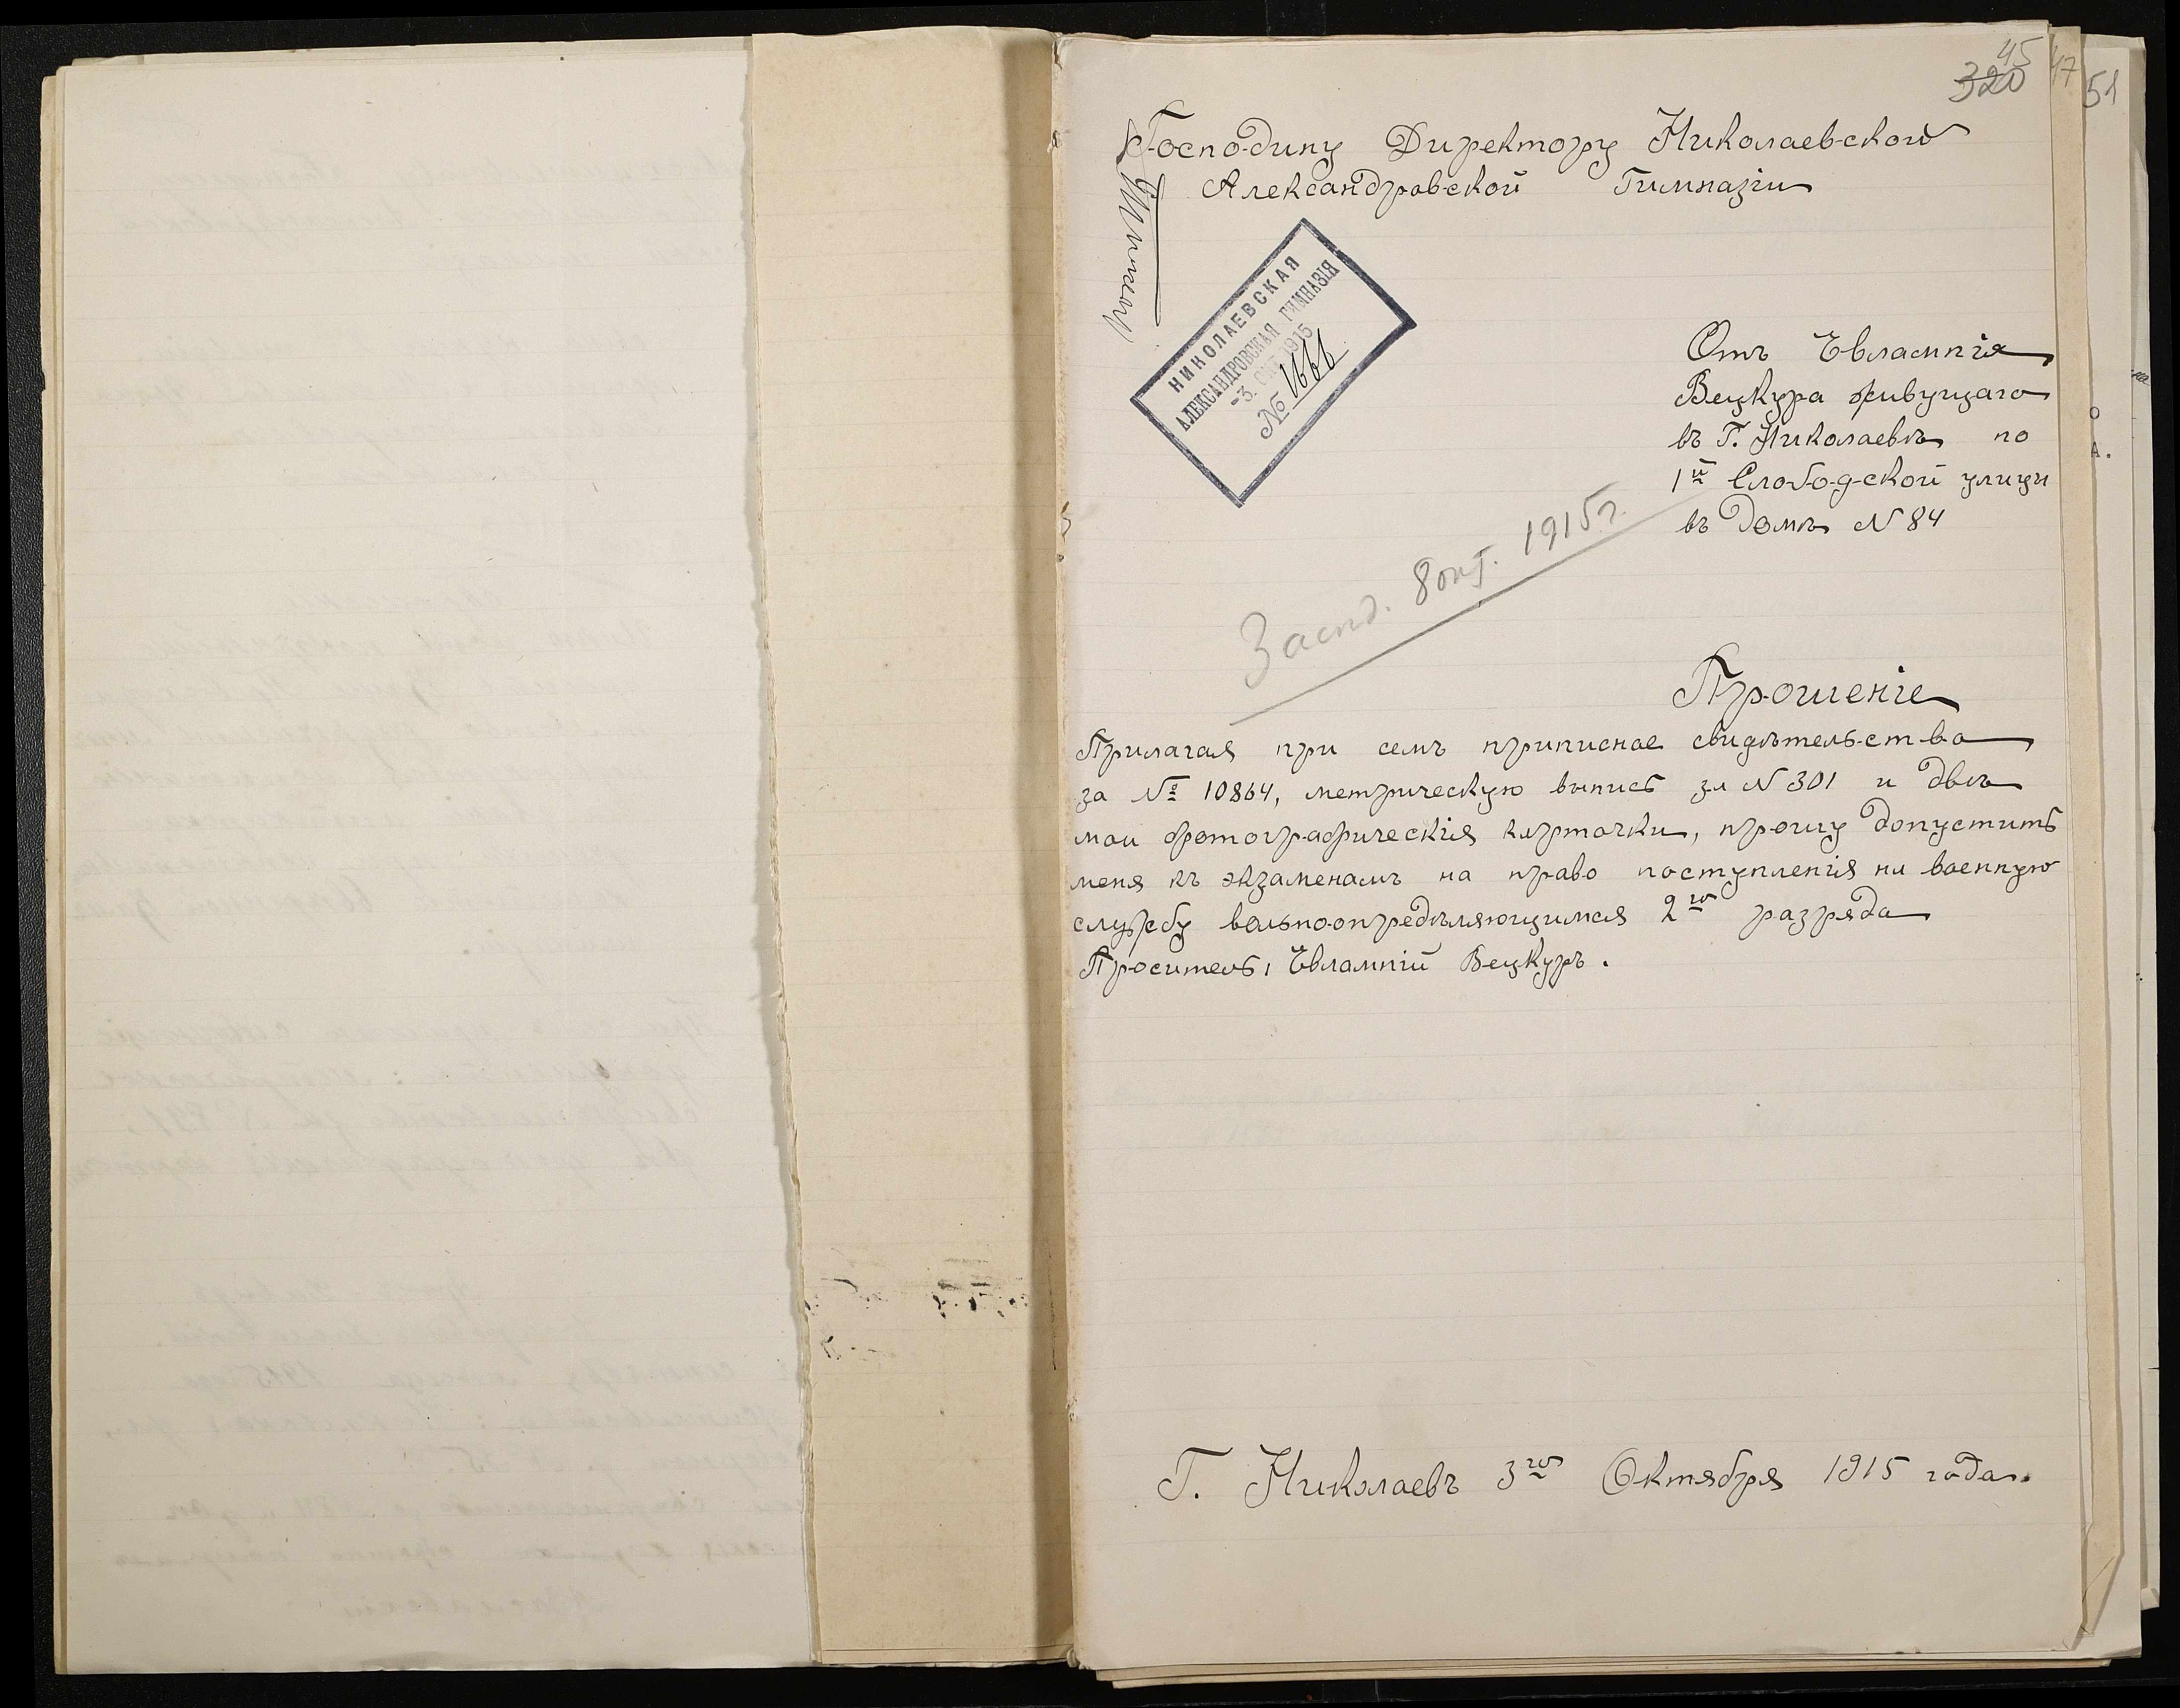 45
320
47
51
Господину Директору Николаевской
Александровской Гимназіи
НИКОЛАЕВСКАЯ
АЛЕКСАНДРОВСКАЯ ГИМНАЗІЯ
-3. ОКТ. 1915
№ 1666
Отъ Евлампія
Вецкура живущаго
въ Г. Николаевѣ по
1й Слободской улицы
въ Домѣ N 84
Заспд. 8 окт. 1915 г.
Прошеніе
Прилагая при семъ приписное свидѣтельство
за № 10864, метрическую выпись за N 301 и двѣ
мои фотографическія карточки, прошу допустить
меня къ экзаменамъ на право поступленія на военную
службу вольноопредѣляющимся 2го разряда
Проситель, Евлампій Вецкуръ.
Г. Николаевъ 3го Октября 1915 года.